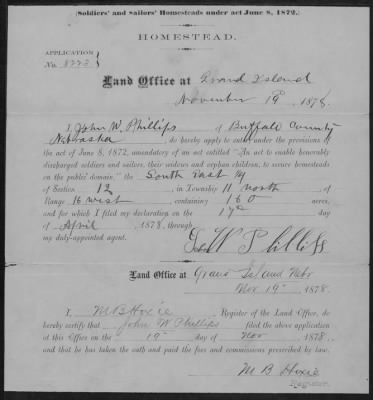 (Soldiers' and Sailors' Homesteads under act June 8, 1872.)
HOMESTEAD.
APPLICATION
No. 8223
Land Office at Grand Island
November 19 1878.
I, John W. Phillips of Buffalo County
Nebraska do hereby apply to enter under the provisions of
the act of June 8, 1872, amendatory of an act entitled "An act to enable honorably
discharged soldiers and sailors, their widows and orphan children, to secure homesteads
on the public domain," the South east ¼
of Section 12 in Township 11 north of
Range 16 west, containing 160 acres,
and for which I filed my declaration on the 17th day
of April, 1878, through
my duly-appointed agent.
John W Phillips
Land Office at Grand Island Nebr
Nov 19" 1878.
I, M B Hoxie, Register of the Land Office, do
hereby certify that John W Phillips filed the above application
at this Office on the 19" day of Nov 1878,
and that he has taken the oath and paid the fees and commissions prescribed by law.
M B Hoxie
Register.